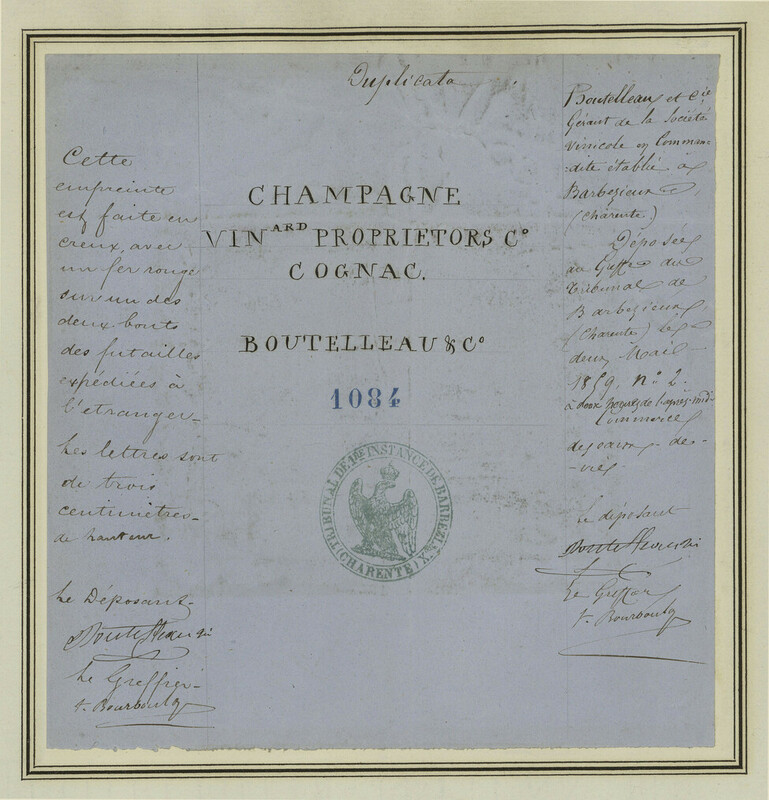 Duplicata
Cette
empreinte
est faite en
creux, avec
un fer rouge
sur un des
deux bouts
des futailles
expédiées à
l'étranger-
Les lettres sont
de trois
centimètres-
de hauteur.
Le Déposant-
Boutelleau & Cie
Le Greffier-
CHAMPAGNE
VINARD PROPRIETORS Co
COGNAC.
BOUTELLEAU & Co
1084
TRIBUNAL DE 1RE INSTANCE DE BARBEZIEUX
(CHARENTE)
Boutelleau et Cie
Gérant de la Société
vinicole en Comman-
dite établie à
Barbezieux
(Charente.)
Déposée
au Greffe du
Tribunal de
Barbezieux
(Charente) le
deux Mai
1859, no 2.
à deux heures de l'après-midi
Commerce
des eaux-de-
-vie
Le déposant
Boutelleau & Cie
Le Greffier